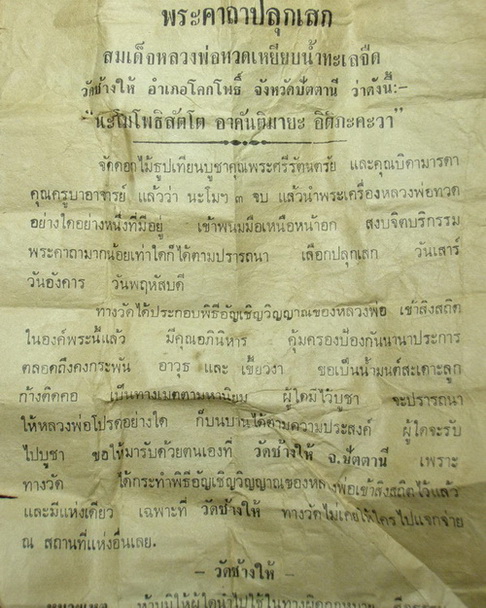 พระคาถาปลุกเสก
สมเด็จหลวงพ่อทวดเหยียบน้ำทะเลจืด
วัดช้างให้ อำเภอโคกโพธิ์ จังหวัดปัตตานี ว่าดังนี้:-
"นะโมโพธิสัตโต อาคันติมายะ อิติภะคะวา"
จัดดอกไม้ธูปเทียนบูชาคุณพระศรีรัตนตรัย และคุณบิดามารดา
คุณครูบาอาจารย์ แล้วว่า นะโมฯ ๓ จบ แล้วนำพระเครื่องหลวงพ่อทวด
อย่างใดอย่างหนึ่งที่มีอยู่ เข้าพนมมือเหนือหน้าอก สงบจิตบริกรรม
พระคาถามากน้อยเท่าใดก็ได้ตามปรารถนา เลือกปลุกเสก วันเสาร์
วันอังคาร วันพฤหัสบดี
ทางวัดได้ประกอบพิธีอัญเชิญวิญญาณของหลวงพ่อ เข้าสิงสถิต
ในองค์พระนี้แล้ว มีคุณอภินิหาร คุ้มครองป้องกันนานาประการ
ตลอดถึงคงกระพัน อาวุธ และ เขี้ยวงา ขอเป็นน้ำมนต์สะเดาะลูก
ก้างติดคอ เป็นทางเมตตามหานิยม ผู้ใดมีไว้บูชา จะปรารถนา
ให้หลวงพ่อโปรดอย่างใด ก็บนบานได้ตามความประสงค์ ผู้ใดจะรับ
ไปบูชา ขอให้มารับด้วยตนเองที่ วัดช้างให้ จ.ปัตตานี เพราะ
ทางวัด ได้กระทำพิธีอัญเชิญวิญญาณของหลวงพ่อเข้าสิงสถิตไว้แล้ว
และมีแห่งเดียว เฉพาะที่ วัดช้างให้ ทางวัดไม่เคยให้ใครไปแจกจ่าย
ณ สถานที่แห่งอื่นเลย.
– วัดช้างให้ –
หมายเหตุ ห้ามมิให้ผู้ใดนำไปใช้ในทาง